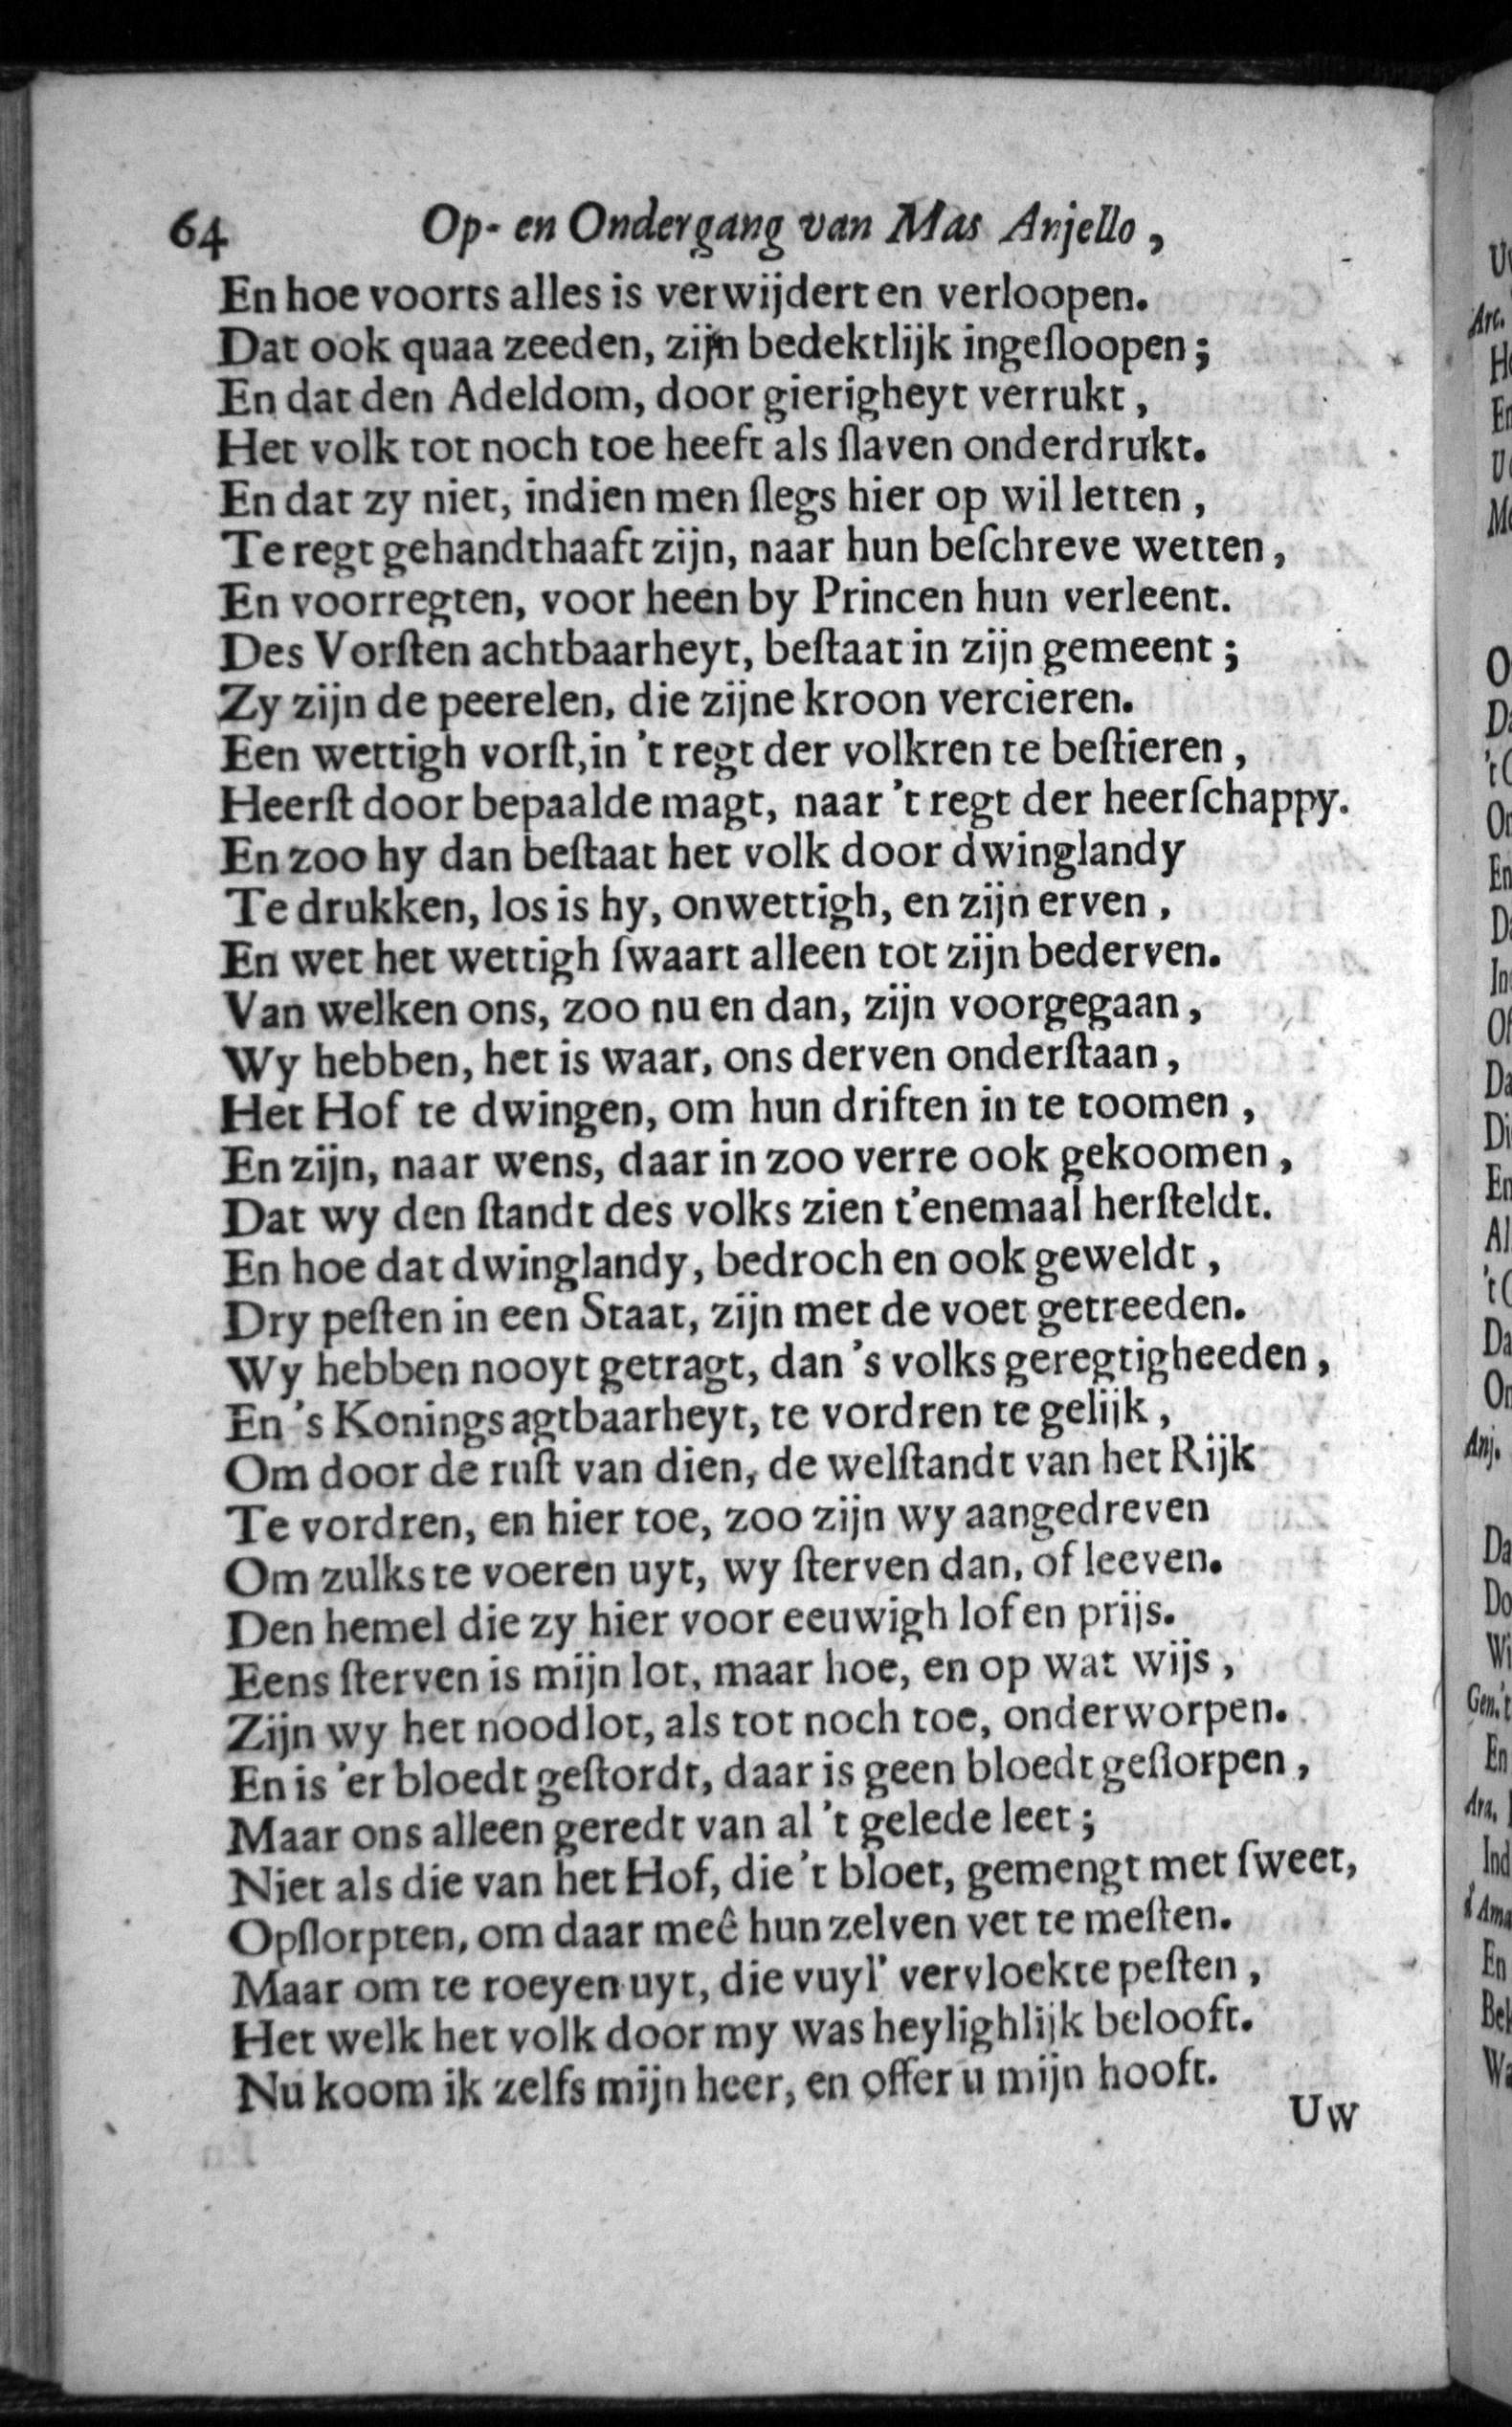 64 Op- en Ondergang van Mas Anjello,
En hoe voorts alles is verwijdert en verloopen.
Dat ook quaa zeeden, zijn bedektlijk ingeſloopen;
En dat den Adeldom, door gierigheyt verrukt,
Het volk tot noch toe heeft als ſlaven onderdrukt.
En dat zy niet, indien men ſlegs hier op wil letten,
Te regt gehandthaaft zijn, naar hun beſchreve wetten,
En voorregten, voor heen by Princen hun verleent.
Des Vorſten achtbaarheyt, beſtaat in zijn gemeent;
Zy zijn de peerelen, die zijne kroon vercieren.
Een wettigh vorſt, in 't regt der volkren te beſtieren,
Heerſt door bepaalde magt, naar 't regt der heerſchappy.
En zoo hy dan beſtaat het volk door dwinglandy
Te drukken, los is hy, onwettigh, en zijn erven,
En wet het wettigh ſwaart alleen tot zijn bederven.
Van welken ons, zoo nu en dan, zijn voorgegaan,
Wy hebben, het is waar, ons derven onderſtaan,
Het Hof te dwingen, om hun driften in te toomen,
En zijn, naar wens, daar in zoo verre ook gekoomen,
Dat wy den ſtandt des volks zien t'enemaal herſteldt.
En hoe dat dwinglandy, bedroch en ook geweldt,
Dry peſten in een Staat, zijn met de voet getreeden.
Wy hebben nooyt getragt, dan 's volks geregtigheeden,
En 's Konings agtbaarheyt, te vordren te gelijk,
Om door de ruſt van dien, de welſtandt van het Rijk
Te vordren, en hier toe, zoo zijn wy aangedreven
Om zulks te voeren uyt, wy ſterven dan, of leeven.
Den hemel die zy hier voor eeuwigh lof en prijs.
Eens ſterven is mijn lot, maar hoe, en op wat wijs,
Zijn wy het noodlot, als tot noch toe, onderworpen.
En is 'er bloedt geſtordt, daar is geen bloedt geſlorpen,
Maar ons alleen geredt van al 't gelede leet;
Niet als die van het Hof, die 't bloet, gemengt met ſweet,
Opſlorpten, om daar meê hun zelven vet te meſten.
Maar om te roeyen uyt, die vuyl' vervloekte peſten,
Het welk het volk door my was heylighlijk belooft.
Nu koom ik zelfs mijn heer, en offer u mijn hooft.
Uw